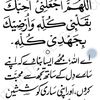 اَللّٰهُمَّ اجْعَلْنِيْ اُحِبُّكَ
بِقَلْبِيْ كُلِّهٖ وَاُرْضِيْكَ
بِجَهْدِيْ كُلِّهٖ
اے اللہ مجھے ایسا بنا دے کہ اپنے
سارے دل کے ساتھ تجھ سے محبت
کروں، اور اپنی ساری کوششیں